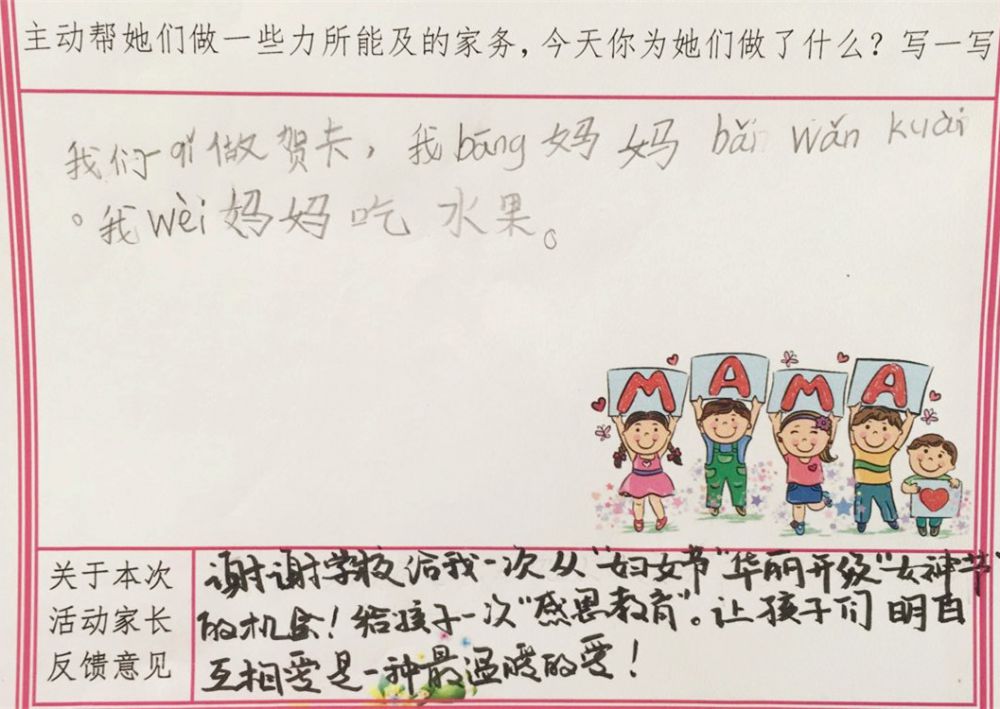 主动帮她们做一些力所能及的家务，今天你为她们做了什么？写一写
我们一qǐ做贺卡，我bāng妈妈bǎi wǎn kuài
。我wèi妈妈吃水果。
MAMA
关于本次
活动家长
反馈意见
谢谢学校给我一次从“妇女节”华丽升级“女神节”
的机会！给孩子一次“感恩教育”。让孩子们明白
互相爱是一种最温暖的爱！